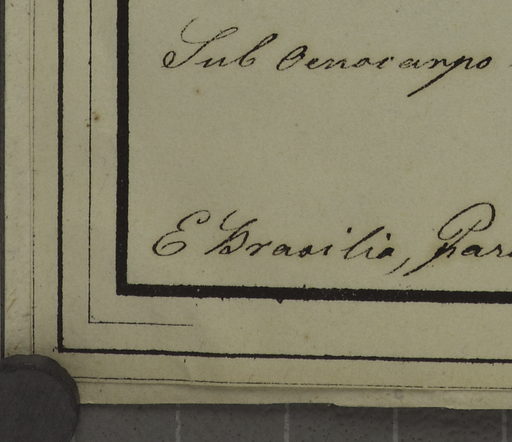 Sub Oenocarpo
E Brasilia, Par